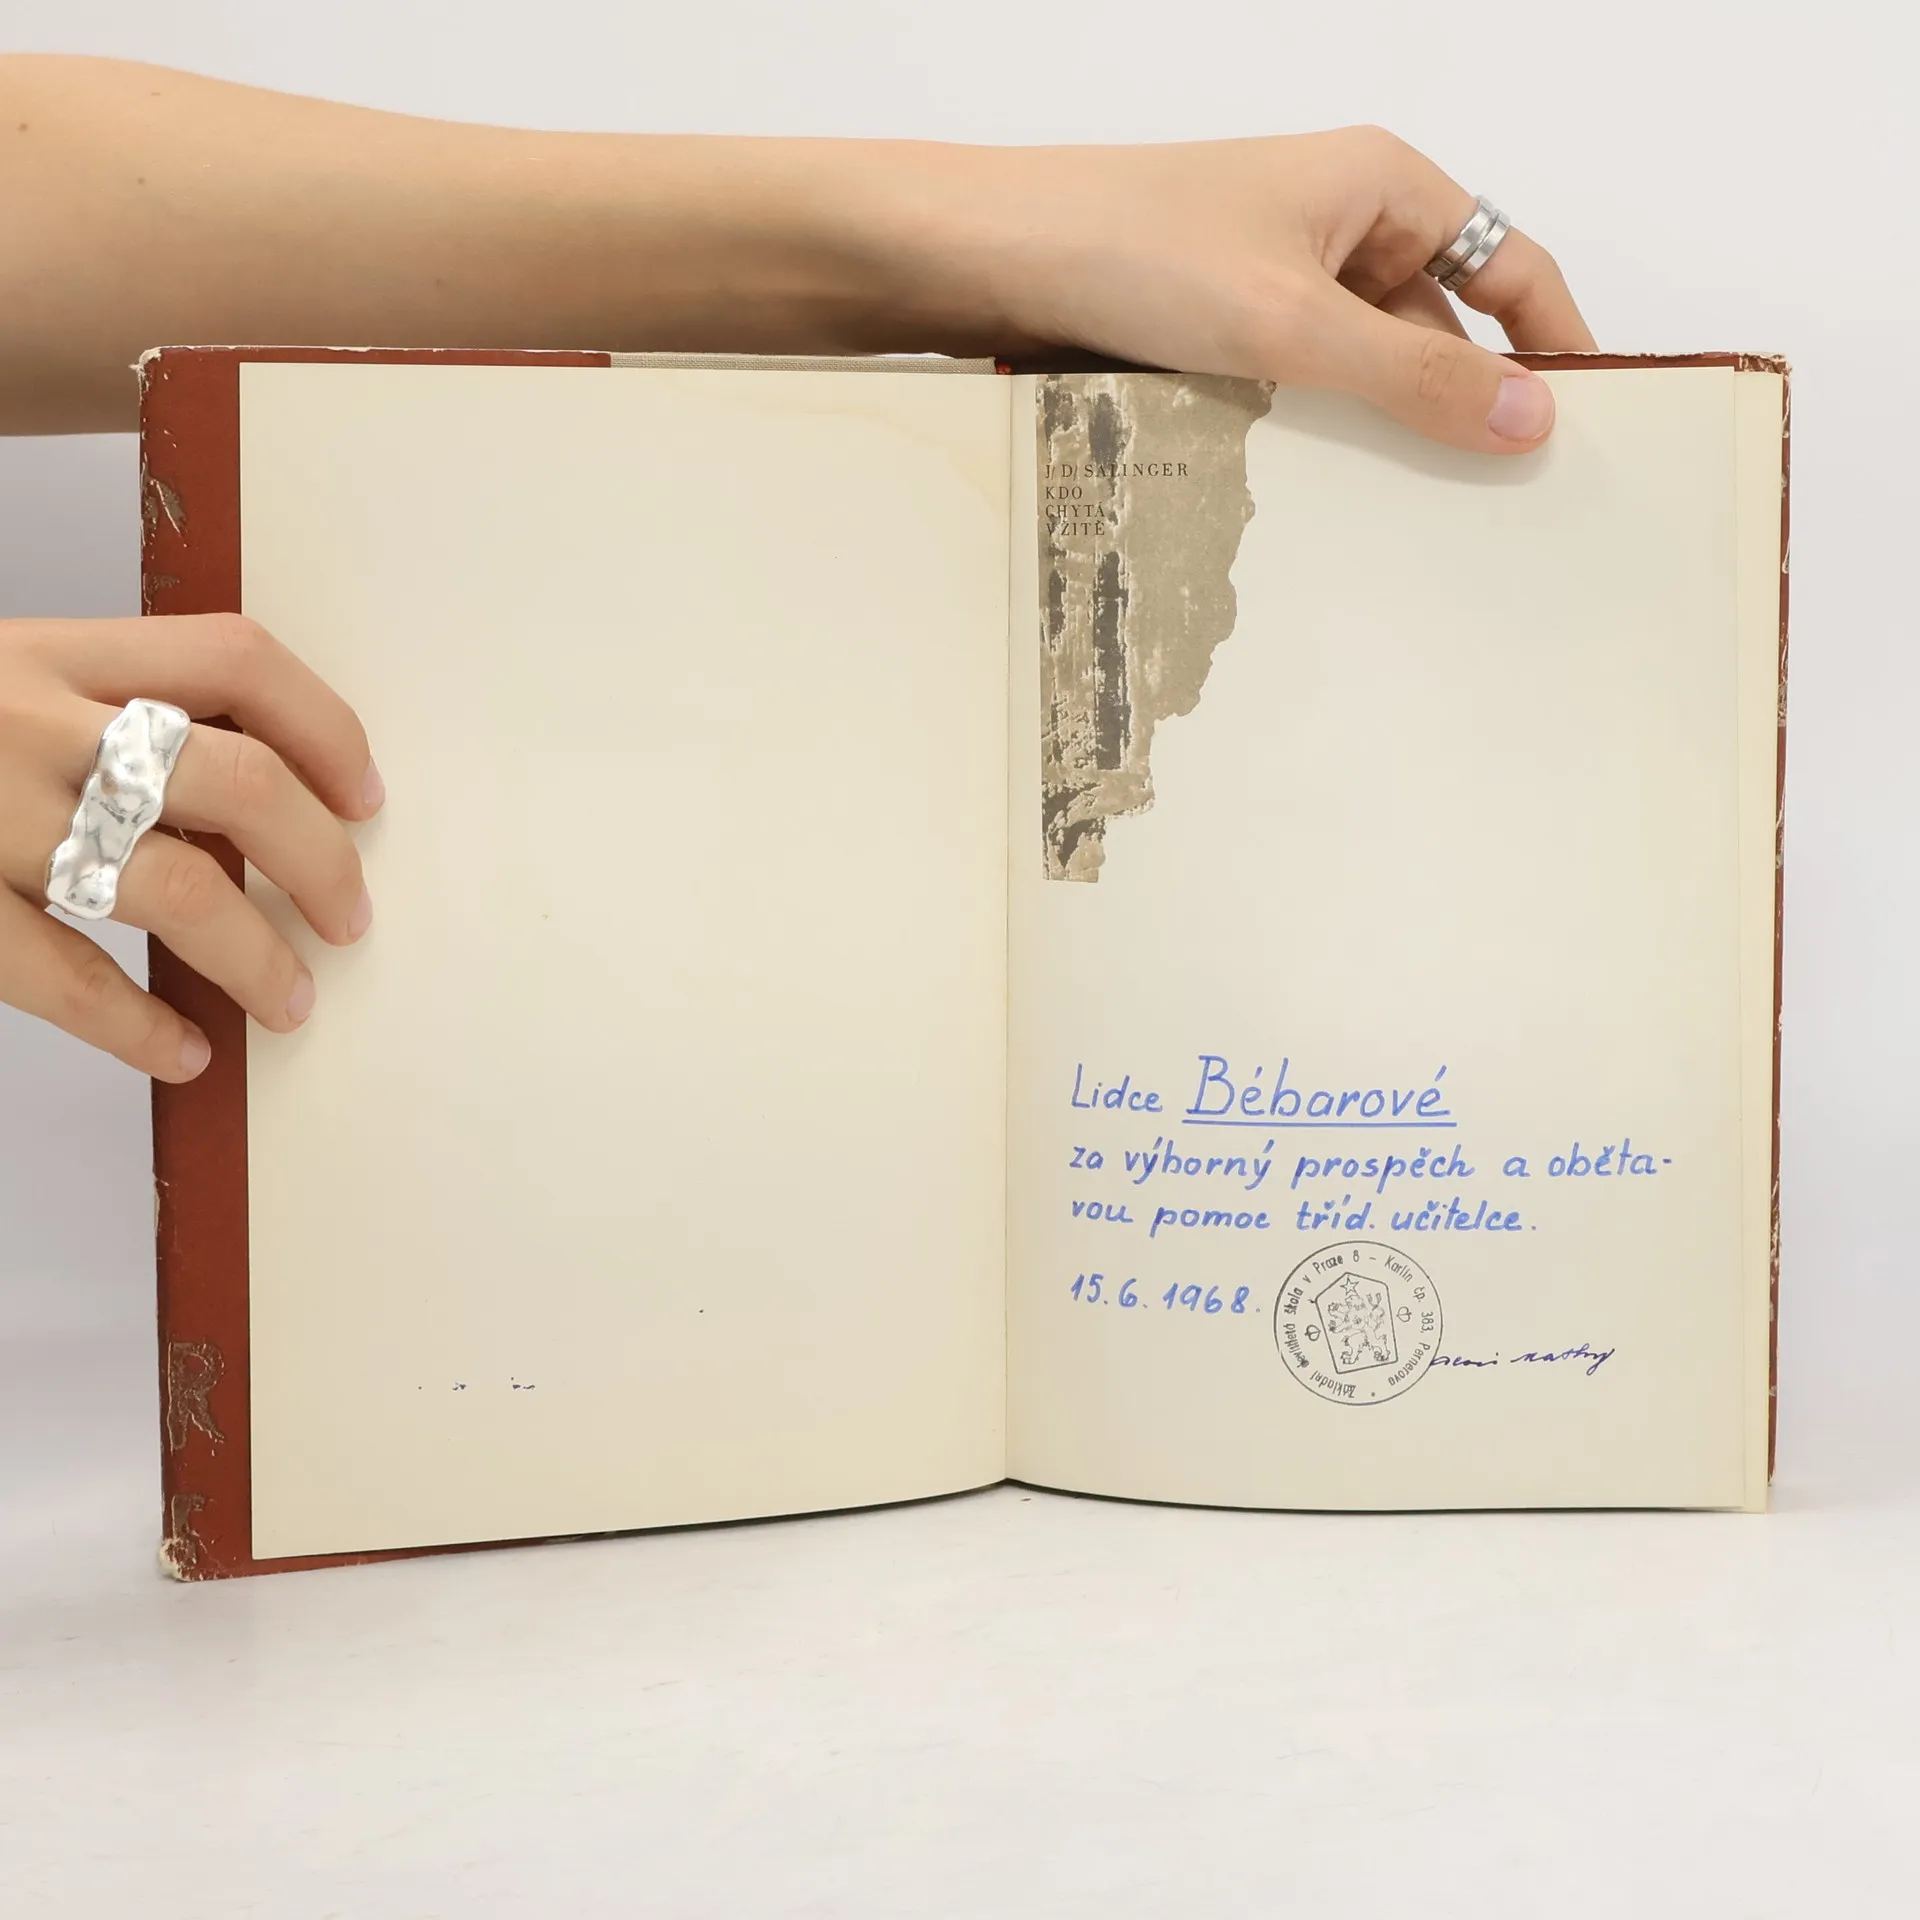 J/ D/ SALINGER
KDO
CHYTÁ
V ŽITĚ
Lidce Bébarové
za výborný prospěch a oběta-
vou pomoc tříd. učitelce.
15.6.1968.
Základní devítiletá škola v Praze 8 - Karlín čp. 383, Pernerova
R